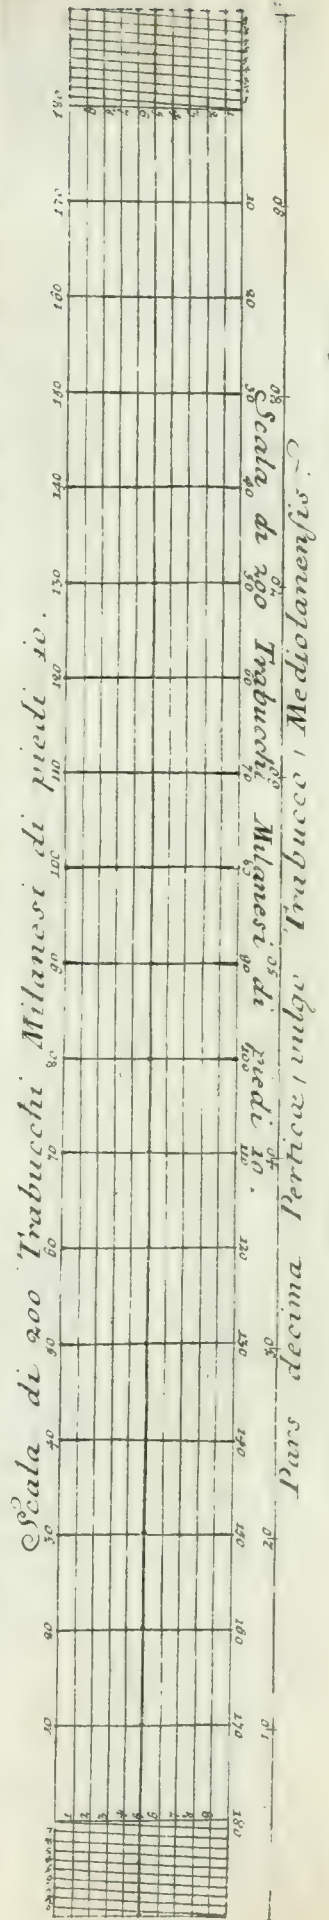 Scala di 200 Trabucchi Milanesi di piedi 10.
10 20 30 40 50 60 70 80 90 100 110 120 130 140 150 160 170 180
1 2 3 4 5 6 7 8 9
180 170 160 150 140 130 120 110 100 90 80 70 60 50 40 30 20 10
Scala di 200 Trabucchi Milanesi di piedi 10.
10 20 30 40 50 60 70 80 90
Pars decima Perticæ, vulgo Trabucco, Mediolanensis.